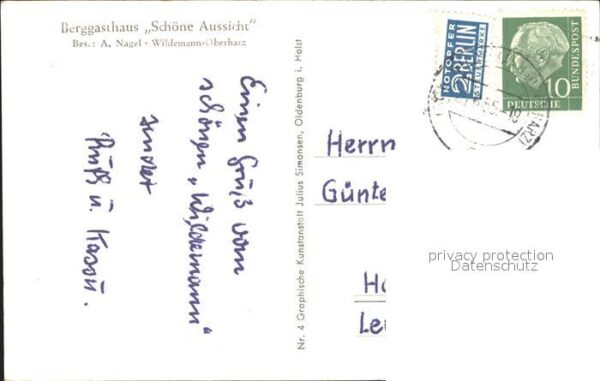 Berggasthaus „Schöne Aussicht"
Bes.: A. Nagel · Wildemann/Oberharz
Einen Gruß vom
schönen „Wildemann"
sendet
Nr. 4 Graphische Kunstanstalt Julius Simonsen, Oldenburg i. Holst
NOTOPFER
2 BERLIN
STEUERMARKE
10
DEUTSCHE
BUNDESPOST
Herrn
Günte
privacy protection
Datenschutz